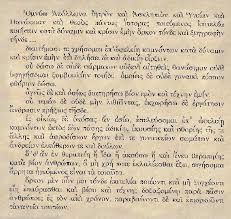 Ὄμνυμι Ἀπόλλωνα ἰητρὸν καὶ Ἀσκληπιὸν καὶ Ὑγείαν καὶ
Πανάκειαν καὶ θεοὺς πάντας ἵστορας ποιεύμενος ἐπιτελέα
ποιήσειν κατὰ δύναμιν καὶ κρίσιν ἐμὴν ὅρκον τόνδε καὶ ξυγγραφὴν
τήνδε.
διαιτήμασί τε χρήσομαι ἐπ' ὠφελείῃ καμνόντων κατὰ δύναμιν
καὶ κρίσιν ἐμήν
οὐ δώσω δὲ οὐδὲ φάρμακον οὐδενὶ αἰτηθεὶς θανάσιμον οὐδὲ
ὑφηγήσομαι ξυμβουλίην τοιήνδε. ὁμοίως δὲ οὐδὲ γυναικὶ πεσσὸν
φθόριον δώσω.
ἁγνῶς δὲ καὶ ὁσίως διατηρήσω βίον ἐμὸν καὶ τέχνην ἐμήν.
οὐ τεμέω δὲ οὐδὲ μὴν λιθιῶντας, ἐκχωρήσω δὲ ἐργάτῃσιν
ἀνδράσιν πρήξιος τῆσδε.
ἐς οἰκίας δὲ ὁκόσας ἂν ἐσίω, ἐσελεύσομαι ἐπ' ὠφελείῃ
καμνόντων ἐκτὸς ἐὼν πάσης ἀδικίης ἑκουσίης καὶ φθορίης τῆς τε
ἄλλης καὶ ἀφροδισίων ἔργων ἐπί τε γυναικείων σωμάτων καὶ
ἀνδρείων ἐλευθέρων τε καὶ δούλων.
ἃ δ' ἂν ἐν θεραπείῃ ἢ ἴδω ἢ ἀκούσω ἢ καὶ ἄνευ θεραπηίης
κατὰ βίον ἀνθρώπων, ἃ μὴ χρή ποτε ἐκλαλέεσθαι ἔξω, σιγήσομαι
ἄρρητα ἡγεύμενος εἶναι τὰ τοιαῦτα.
ὅρκον μὲν οὖν μοι τόνδε ἐπιτελέα ποιέοντι καὶ μὴ ξυγχέοντι
εἴη ἐπαύρασθαι καὶ βίου καὶ τέχνης δοξαζομένῳ παρὰ πᾶσιν
ἀνθρώποις ἐς τὸν αἰεὶ χρόνον, παραβαίνοντι δὲ καὶ ἐπιορκέοντι
τἀναντία τουτέων.